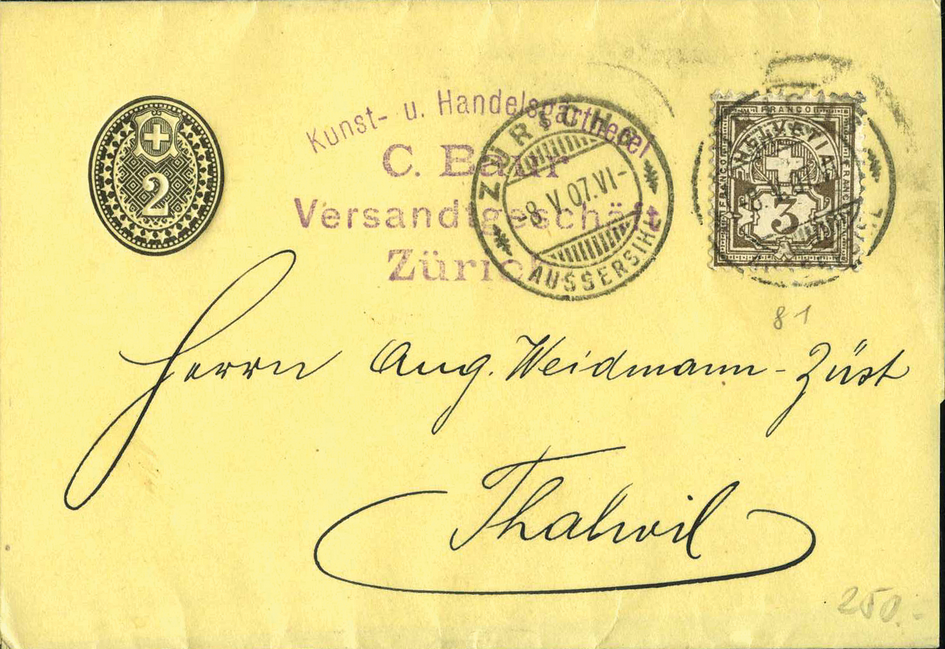 2
Kunst- u. Handelsgärtnerei
C. Baur
Versandtgeschäft
Zürich
ZÜRICH
-8.V.07.VI-
AUSSERSIHL
FRANCO
HELVETIA
FRANCO
FRANCO
3
81
Herrn Aug. Weidmann-Züst
Thalwil
250.-